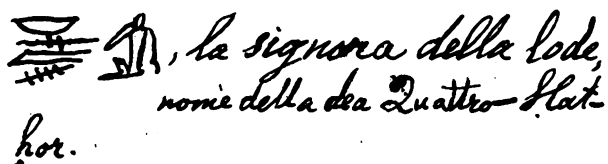 , la signora della lode,
nome della dea Quattro-Hat-
hor.